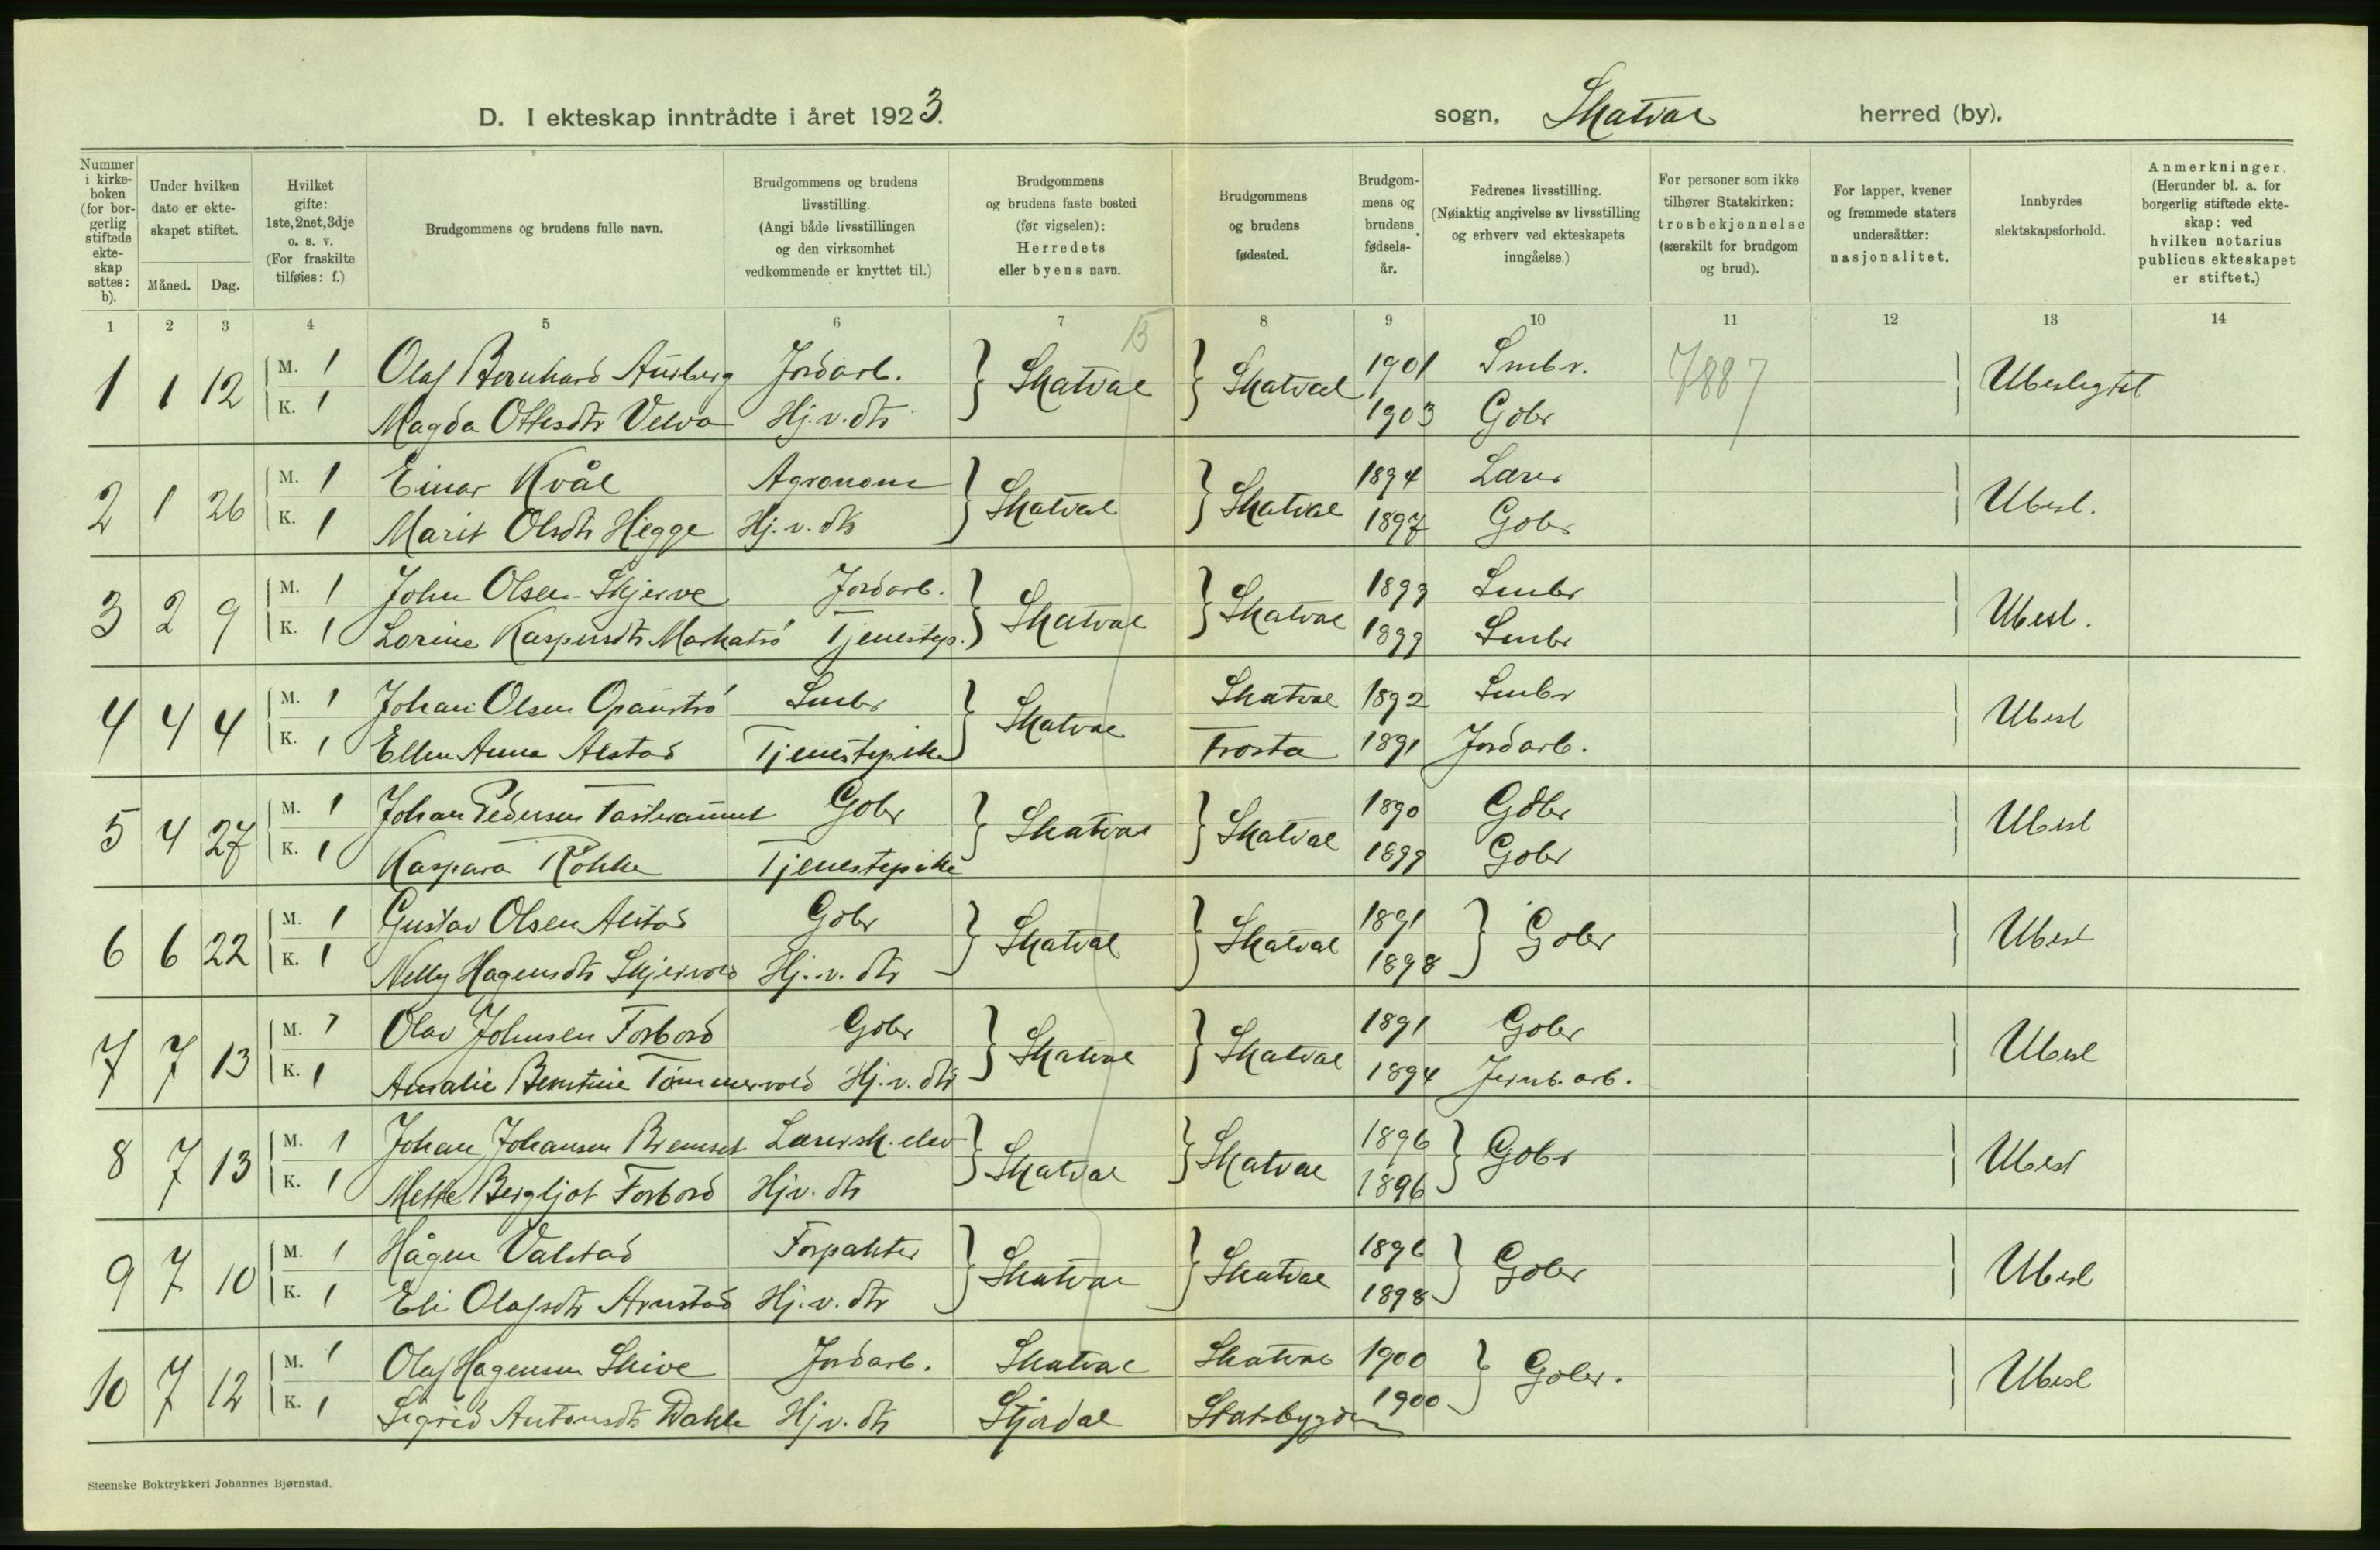 D. I ekteskap inntrådte i året 1923. sogn, Skatval herred (by).
Nummer i kirkeboken (for borgerlig stiftede ekteskap settes: b).
Under hvilken dato er ekteskapet stiftet.
Måned. Dag.
Hvilket gifte: 1ste, 2net, 3dje o. s. v. (For fraskilte tilføies: f.)
Brudgommens og brudens fulle navn.
Brudgommens og brudens livsstilling. (Angi både livsstillingen og den virksomhet vedkommende er knyttet til.)
Brudgommens og brudens faste bosted (før vigselen): Herredets eller byens navn.
Brudgommens og brudens fødested.
Brudgommens og brudens fødselsår.
Fedrenes livsstilling. (Nøiaktig angivelse av livsstilling og erhverv ved ekteskapets inngåelse.)
For personer som ikke tilhører Statskirken: trosbekjennelse (særskilt for brudgom og brud).
For lapper, kvener og fremmede staters undersåtter: nasjonalitet.
Innbyrdes slektskapsforhold.
Anmerkninger. (Herunder bl. a. for borgerlig stiftede ekteskap: ved hvilken notarius publicus ekteskapet er stiftet.)
1 2 3 4 5 6 7 8 9 10 11 12 13 14
1 1 12 M. 1 Olaf Bernhard Aurberg Jordarb. } Skatval } Skatval 1901 Smbr. 7887 } Ubeslegtet
K. 1 Magda Ottesdtr Velva Hj.v.dtr 1903 Gbr
2 1 26 M. 1 Einar Kvål Agronom } Skatval } Skatval 1894 Lærer } Ubesl.
K. 1 Marit Olsdtr Hegge Hj.v.dtr 1897 Gbr
3 2 9 M. 1 John Olsen Skjerve Jordarb. } Skatval } Skatval 1899 Smbr } Ubesl.
K. 1 Lorine Kaspersdtr Tjenestep. 1899 Smbr
4 4 4 M. 1 Johan Olsen Smbr } Skatval Skatval 1892 Smbr } Ubesl
K. 1 Ellen Anna Alstad Tjenestepike Frosta 1891 Jordarb.
5 4 27 M. 1 Johan Pedersen Gbr } Skatval } Skatval 1890 Gbr } Ubesl
K. 1 Kaspara Røkke Tjenestepike 1899 Gbr
6 6 22 M. 1 Gustav Olsen Alstad Gbr } Skatval } Skatval 1891 } Gbr } Ubesl
K. 1 Nelly Hagensdtr Skjervold Hj.v.dtr 1898
7 7 13 M. 1 Olav Johnsen Forbord Gbr } Skatval } Skatval 1891 Gbr } Ubesl
K. 1 Amalie Berntine Tømmervold Hj.v.dtr 1894 Jernb.arb.
8 7 13 M. 1 Johan Johansen Bremset Lærersk.elev } Skatval } Skatval 1896 } Gbr } Ubesl
K. 1 Mette Bergljot Forbord Hjv.dtr 1896
9 7 10 M. 1 Hågen Valstad Forpakter } Skatval } Skatval 1896 } Gbr } Ubesl
K. 1 Eli Olafsdtr Arnstad Hj.v.dtr 1898
10 7 12 M. 1 Olaf Hagensen Skive Jordarb. Skatval Skatval 1900 } Gbr. } Ubesl
K. 1 Sigrid Antonsdtr Dahle Hjv.dtr Stjørdal Statsbygden 1900
Steenske Boktrykkeri Johannes Bjørnstad.